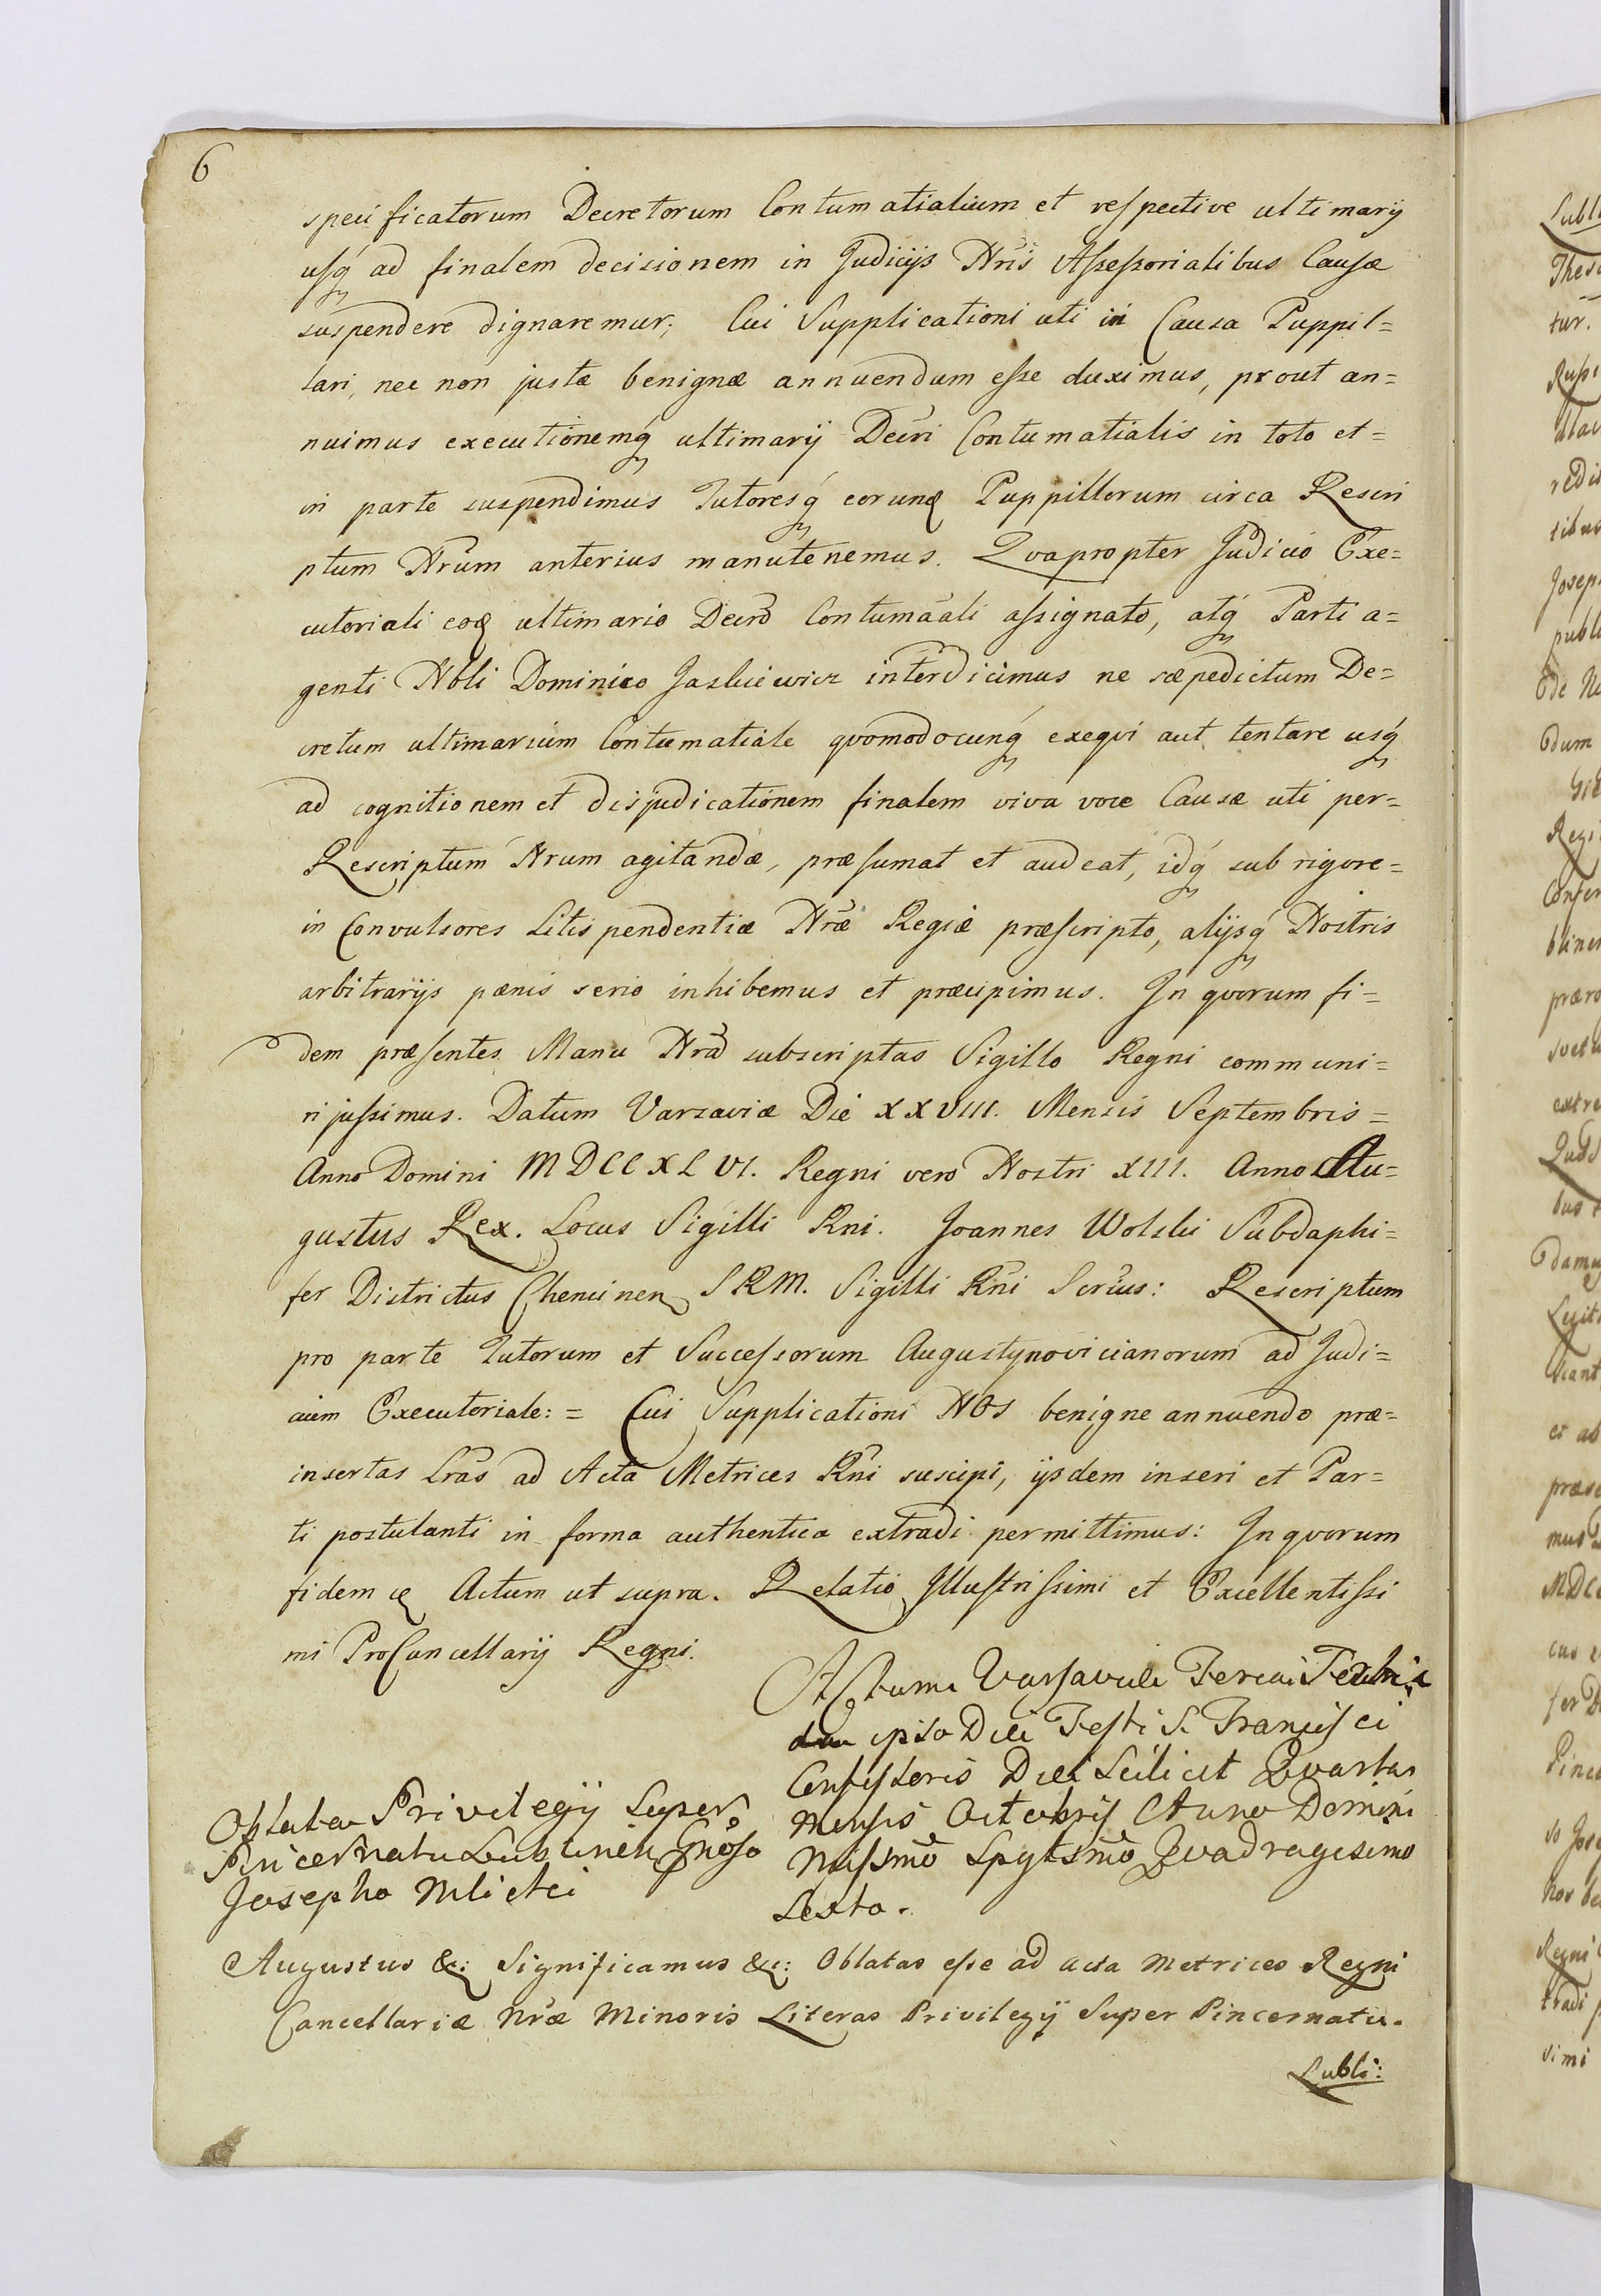 6
specificatorum Decretorum Contumatialium et respective ultimarij
usq́ ad finalem decisionem in Judicijs Nris Assessorialibus Causæ
suspendere dignaremur; Cui Supplicationi uti in Causa Puppil=
lari, nec non justæ benignæ annuendum esse duximus, prout an=
nuimus executionemq́ ultimarij Decri Contumatialis in toto et=
in parte suspendimus Tutoresq́ eorund Puppillorum circa Rescri
ptum Nrum anterius manutenemus. Qvapropter Judicio Exe=
cutoriali eod ultimario Decro Contumaali assignato, atq́ Parti a=
genti Nbli Dominico Jaskiewicz interdicimus ne sæpedictum De=
cretum ultimarium Contumatiale qvomodocunq́ exeqvi aut tentare usq́
ad cognitionem et disjudicationem finalem viva voce Causæ uti per=
Rescriptum Nrum agitandæ, præsumat et audeat, idq́ sub rigore=
in Convulsores Litis pendentiæ Nræ Regiæ præscripto, alijsq́ Nostris
arbitrarijs pænis serio inhibemus et præcipimus. In qvorum fi=
dem præsentes Manu Nra subscriptas Sigillo Regni communi=
ri jussimus. Datum Varsaviæ Die XXVIII. Mensis Septembris=
Anno Domini MDCCXLVI. Regni vero Nostri XIII. Anno Au=
gustus Rex. Locus Sigilli Rni. Joannes Wolski Subdaphi=
fer Districtus Chencinen SRM. Sigilli Rni Scrius: Rescriptum
pro parte Tutorum et Successorum Augustynovicianorum ad Judi=
cium Executoriale: = Cui Supplicationi NOS benigne annuendo præ=
insertas Lras ad Acta Metrices Rni suscipi, ijsdem inseri et Par=
ti postulanti in forma authentica extradi permittimus: In qvorum
fidem Actum ut supra. Relatio Illustrissimi et Excellentissi
mi ProCancellarij Regni.
Actum Varsaviæ Feria Tertia
ipso Die Festi S. Francisci
Confessoris Die Scilicet Qvarta
Mensis Octobris Anno Domini
Millsmo Sptgtsmo Qvadragesimo
Sexto.
Oblata Privilegij Super
Pincernatu Lublinen Gnoso
Josepho
Augustus &c: Significamus &c: Oblatas esse ad acta Metrices Regni
Cancellariæ Nræ Minoris Literas Privilegij Super Pincernatu.
Lubli: